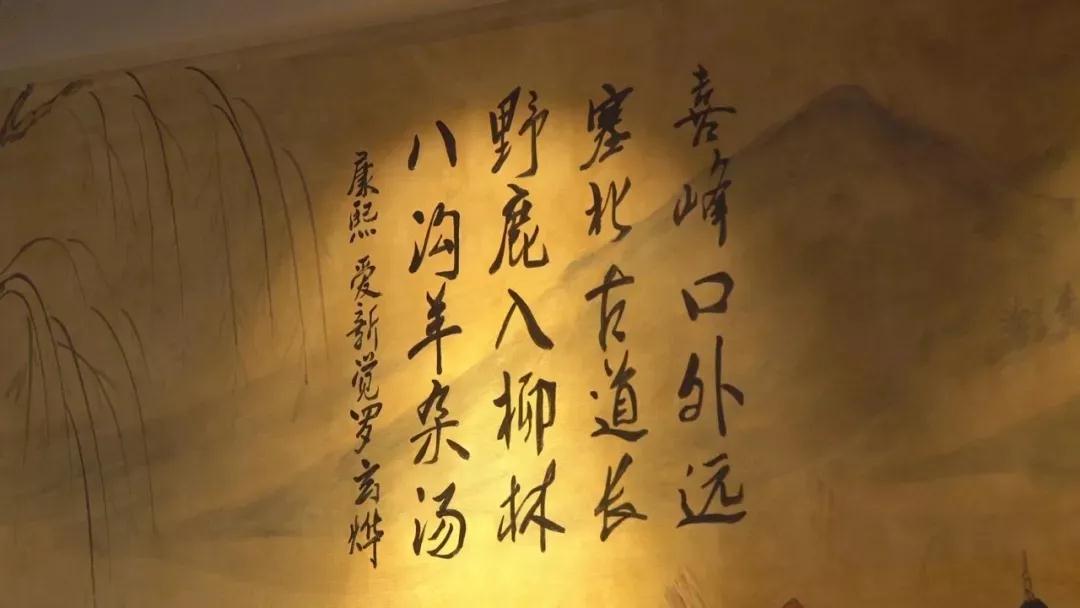 喜峰口外远
塞北古道长
野鹿入柳林
八沟羊杂汤
康熙 爱新觉罗玄烨